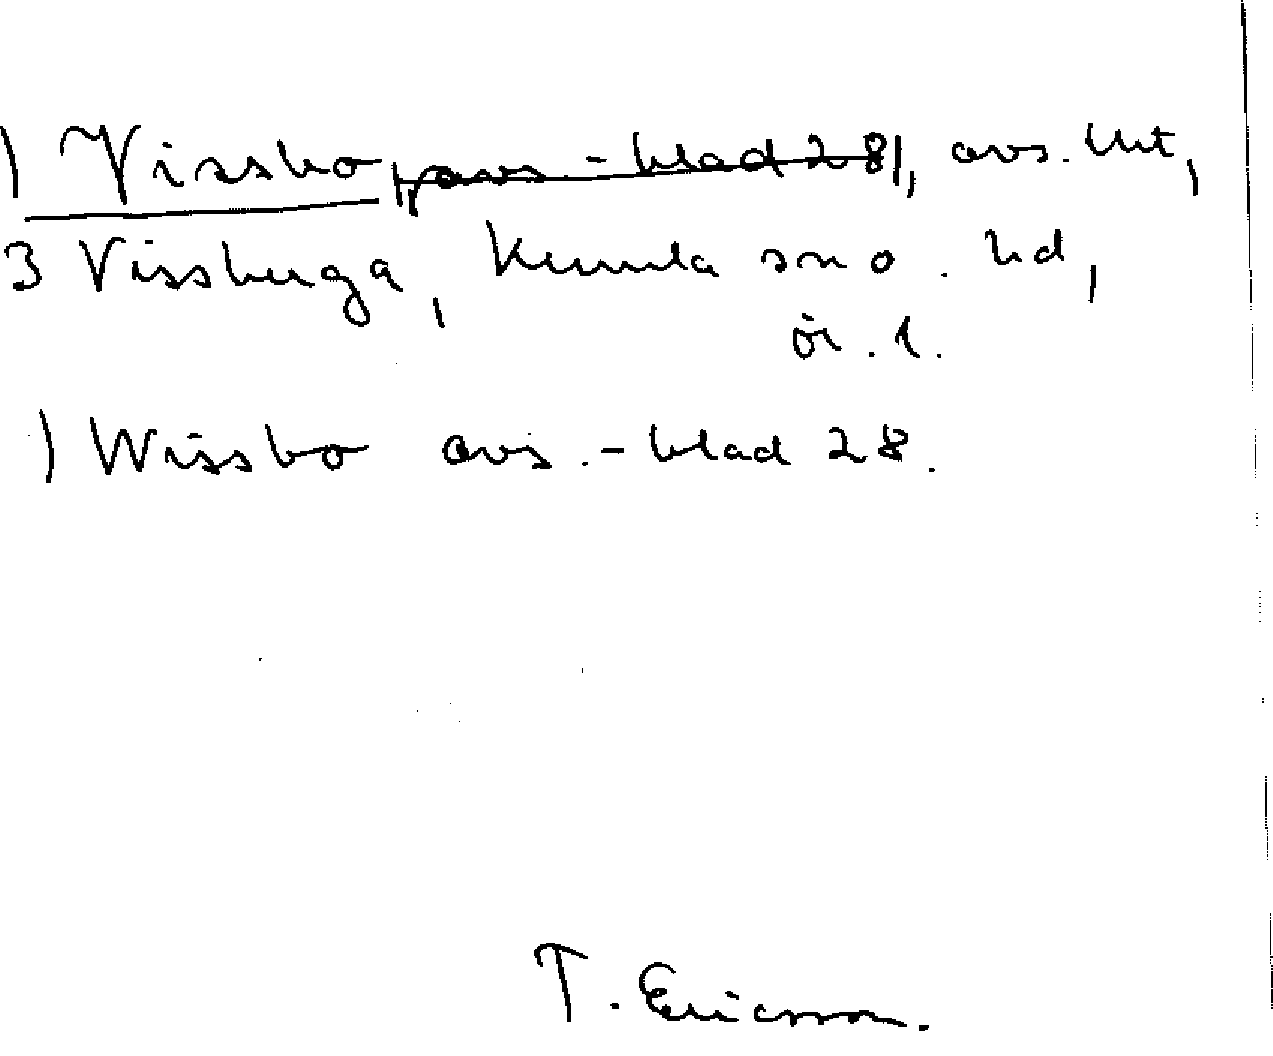 ) Vissbo, avs.-blad 28, avs. Unt,
3 Vissberga, Kumla sn o. hd,
ör. l.
) Wissbo avs.-blad 28.
T. Ericsson.